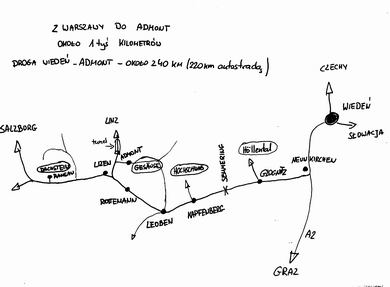 Z WARSZAWY DO ADMONT
OKOŁO 1 tyś KILOMETRÓW
DROGA WIEDEŃ - ADMONT - OKOŁO 240 KM (220km autostradą)
CZECHY
WIEDEŃ
SŁOWACJA
LINZ
SALZBURG
tunel
ADMONT
GESÄUSE
Höllental
SEMMERING
NEUNKIRCHEN
DACHSTEIN
RAMSAU
LIZEN
HOCHSCHWAB
GLOGNITZ
ROTTENMANN
KAPFENBERG
LEOBEN
A2
GRAZ